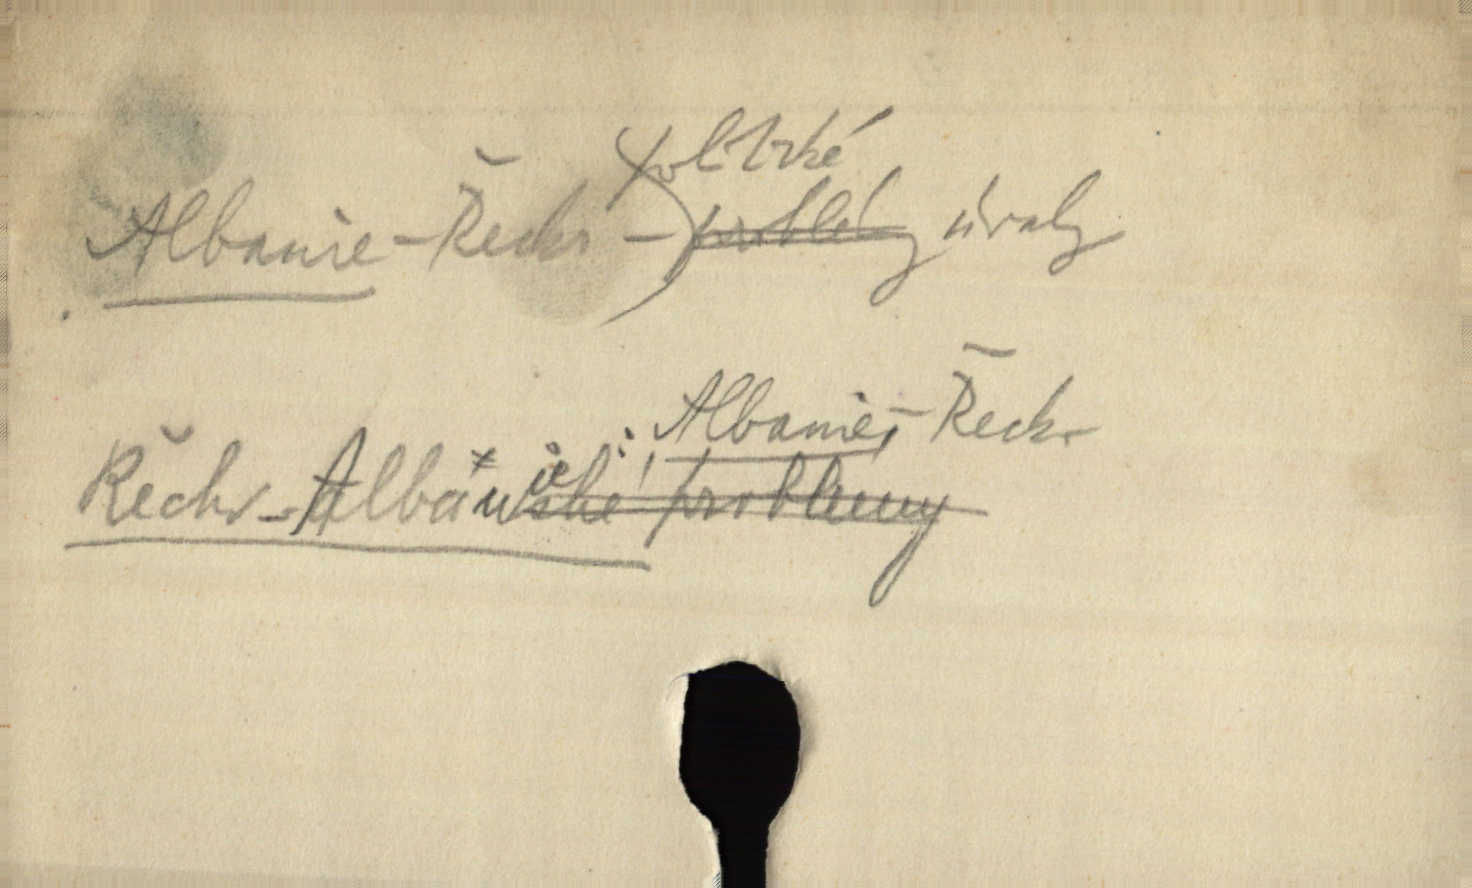 politické
Albanie - Řecko - problémy úvahy
Albanie - Řecko
Řecko - Albánské problémy